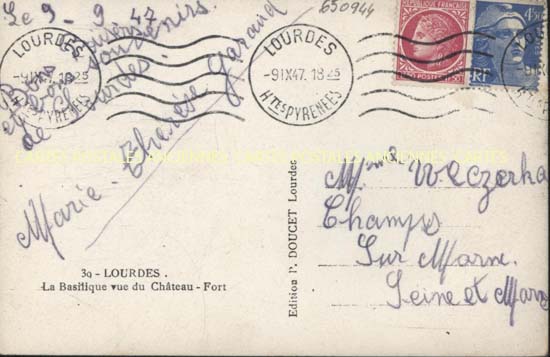 Le 9-9-47
650944
Bons baisers
et souvenirs
de Lourdes.
Marie-Thérèse Garaud
LOURDES
-9 IX 47. 18 25
HTES PYRENEES
LOURDES
-9 IX 47. 18 25
HTES PYRENEES
POSTES
RF
CARTES POSTALES ANCIENNES CARTES POSTALES ANCIENNES CARTES
Mme Weczerka
Champs
Sur Marne
Seine et Marne
39 - LOURDES.
La Basilique vue du Château-Fort
Edition P. DOUCET Lourdes